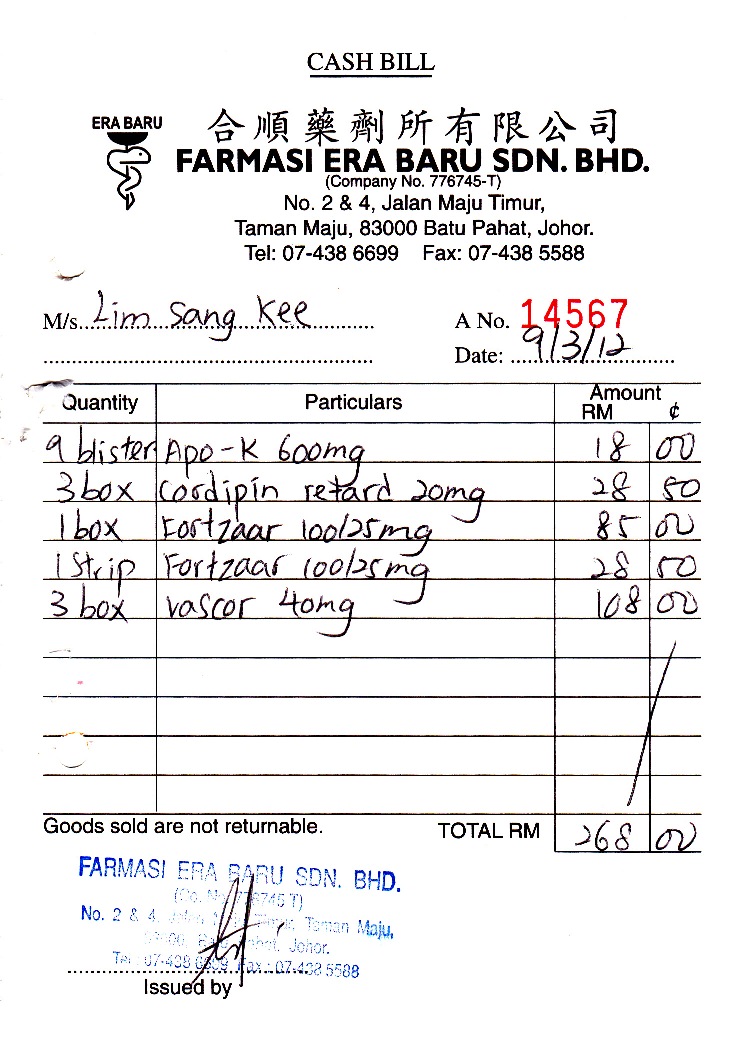 CASH BILL
ERA BARU
合順藥劑所有限公司
FARMASI ERA BARU SDN. BHD.
(Company No. 776745-T)
No. 2 & 4, Jalan Maju Timur,
Taman Maju, 83000 Batu Pahat, Johor.
Tel: 07-438 6699 Fax: 07-438 5588
M/s. Lim Sang Kee A No. 14567
Date: 9/3/12
Quantity Particulars Amount
RM ¢
9 blister Apo-K 600mg 18 00
3 box Cordipin retard 20mg 28 50
1 box Fortzaar 100/25mg 85 00
1 Strip Fortzaar 100/25mg 28 50
3 box vascor 40mg 108 00
Goods sold are not returnable. TOTAL RM 268 00
FARMASI ERA BARU SDN. BHD.
(Co. No. 776745 T)
No. 2 & 4, Jalan Maju Timur, Taman Maju,
83000, Batu Pahat, Johor.
Tel: 07-438 6699 Fax: 07-438 5588
Issued by